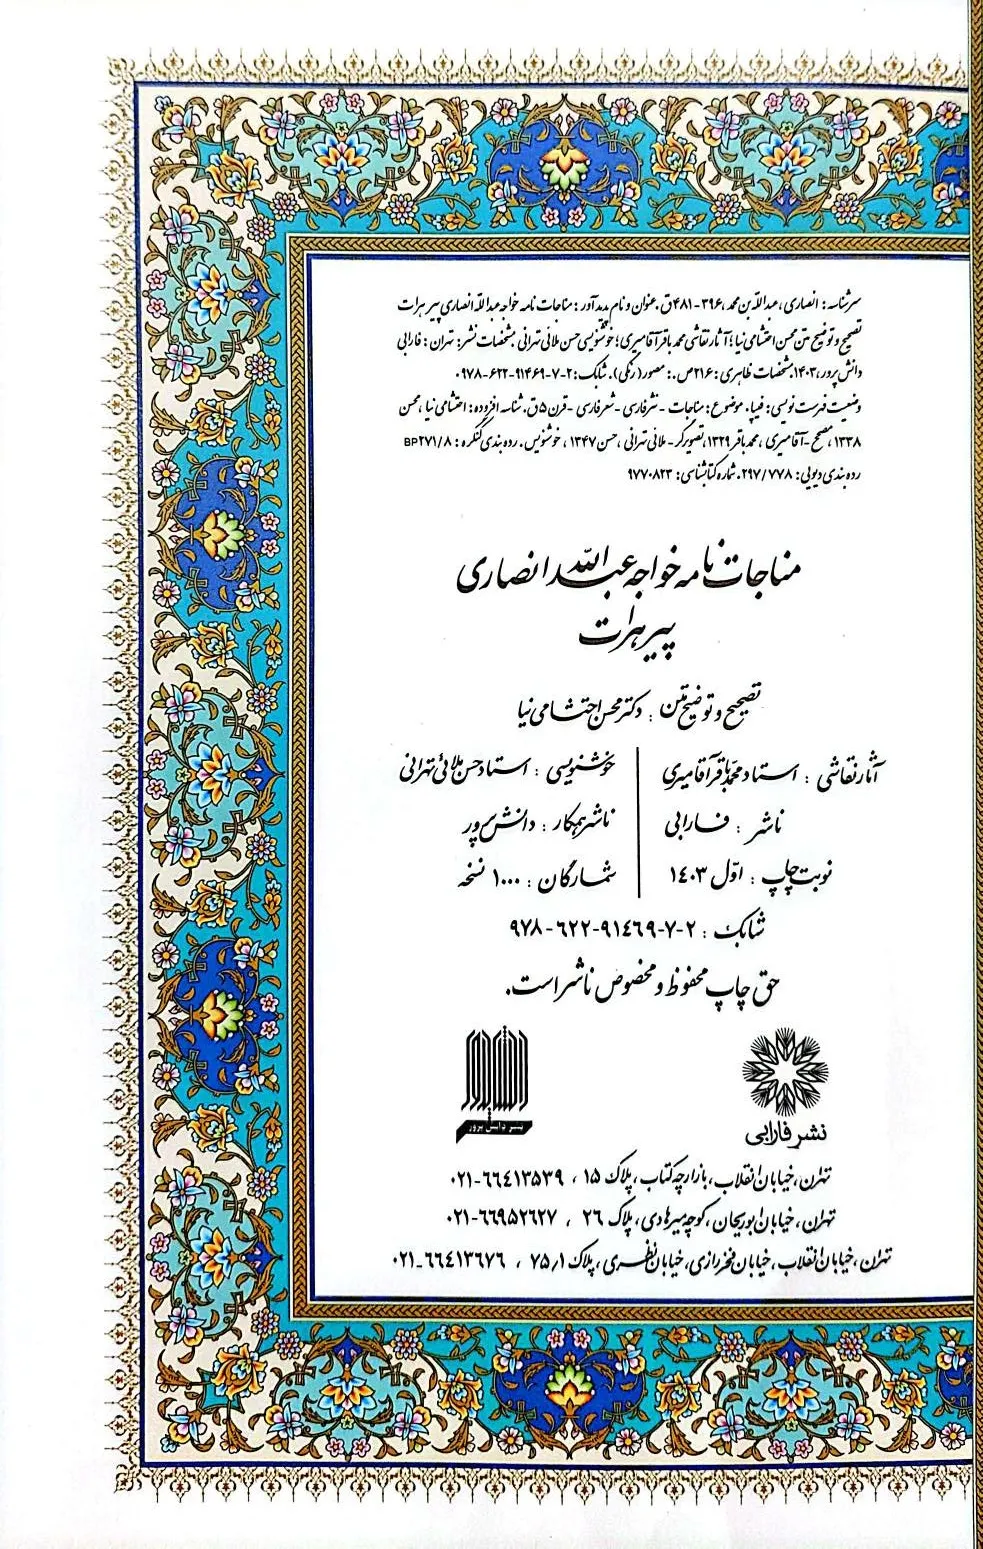 سرشناسه: انصاری، عبدالله بن محمد، ۳۹۶-۴۸۱ق. عنوان و نام پدیدآور: مناجات نامه خواجه عبدالله انصاری پیر هرات
تصحیح و توضیح متن محسن احتشامی نیا؛ آثار نقاشی محمدباقر آقامیری؛ خوشنویسی حسن ملائی تهرانی. مشخصات نشر: تهران: فارابی
دانش پرور، ۱۴۰۳. مشخصات ظاهری: ۲۱۶ص.: مصور(رنگی). شابک: ۲-۷-۹۱۴۶۹-۶۲۲-۹۷۸
وضعیت فهرست نویسی: فیپا. موضوع: مناجات - نثر فارسی - شعر فارسی - قرن ۵ق. شناسه افزوده: احتشامی نیا، محسن
۱۳۳۸، مصحح - آقامیری، محمدباقر ۱۳۲۹، تصویرگر - ملائی تهرانی، حسن ۱۳۴۷، خوشنویس. رده بندی کنگره: BP۲۷۱/۸
رده بندی دیویی: ۲۹۷/۷۷۸. شماره کتابشناسی: ۹۷۷۰۸۲۳
مناجات نامه خواجه عبدالله انصاری
پیر هرات
تصحیح و توضیح متن: دکتر محسن احتشامی نیا
آثار نقاشی: استاد محمدباقر آقامیری
خوشنویسی: استاد حسن ملائی تهرانی
ناشر: فارابی
ناشر همکار: دانش پرور
نوبت چاپ: اوّل ۱۴۰۳
شمارگان: ۱۰۰۰ نسخه
شابک: ۲-۷-۹۱۴۶۹-۶۲۲-۹۷۸
حق چاپ محفوظ و مخصوص ناشر است.
نشر فارابی
نشر دانش پرور
تهران، خیابان انقلاب، بازارچه کتاب، پلاک ۱۵، ۶۶۴۱۳۵۳۹-۰۲۱
تهران، خیابان ابوریحان، کوچه میرهادی، پلاک ۲۶، ۶۶۹۵۲۶۲۷-۰۲۱
تهران، خیابان انقلاب، خیابان فخر رازی، خیابان نظری، پلاک ۷۵/۱، ۶۶۴۱۳۶۷۶-۰۲۱